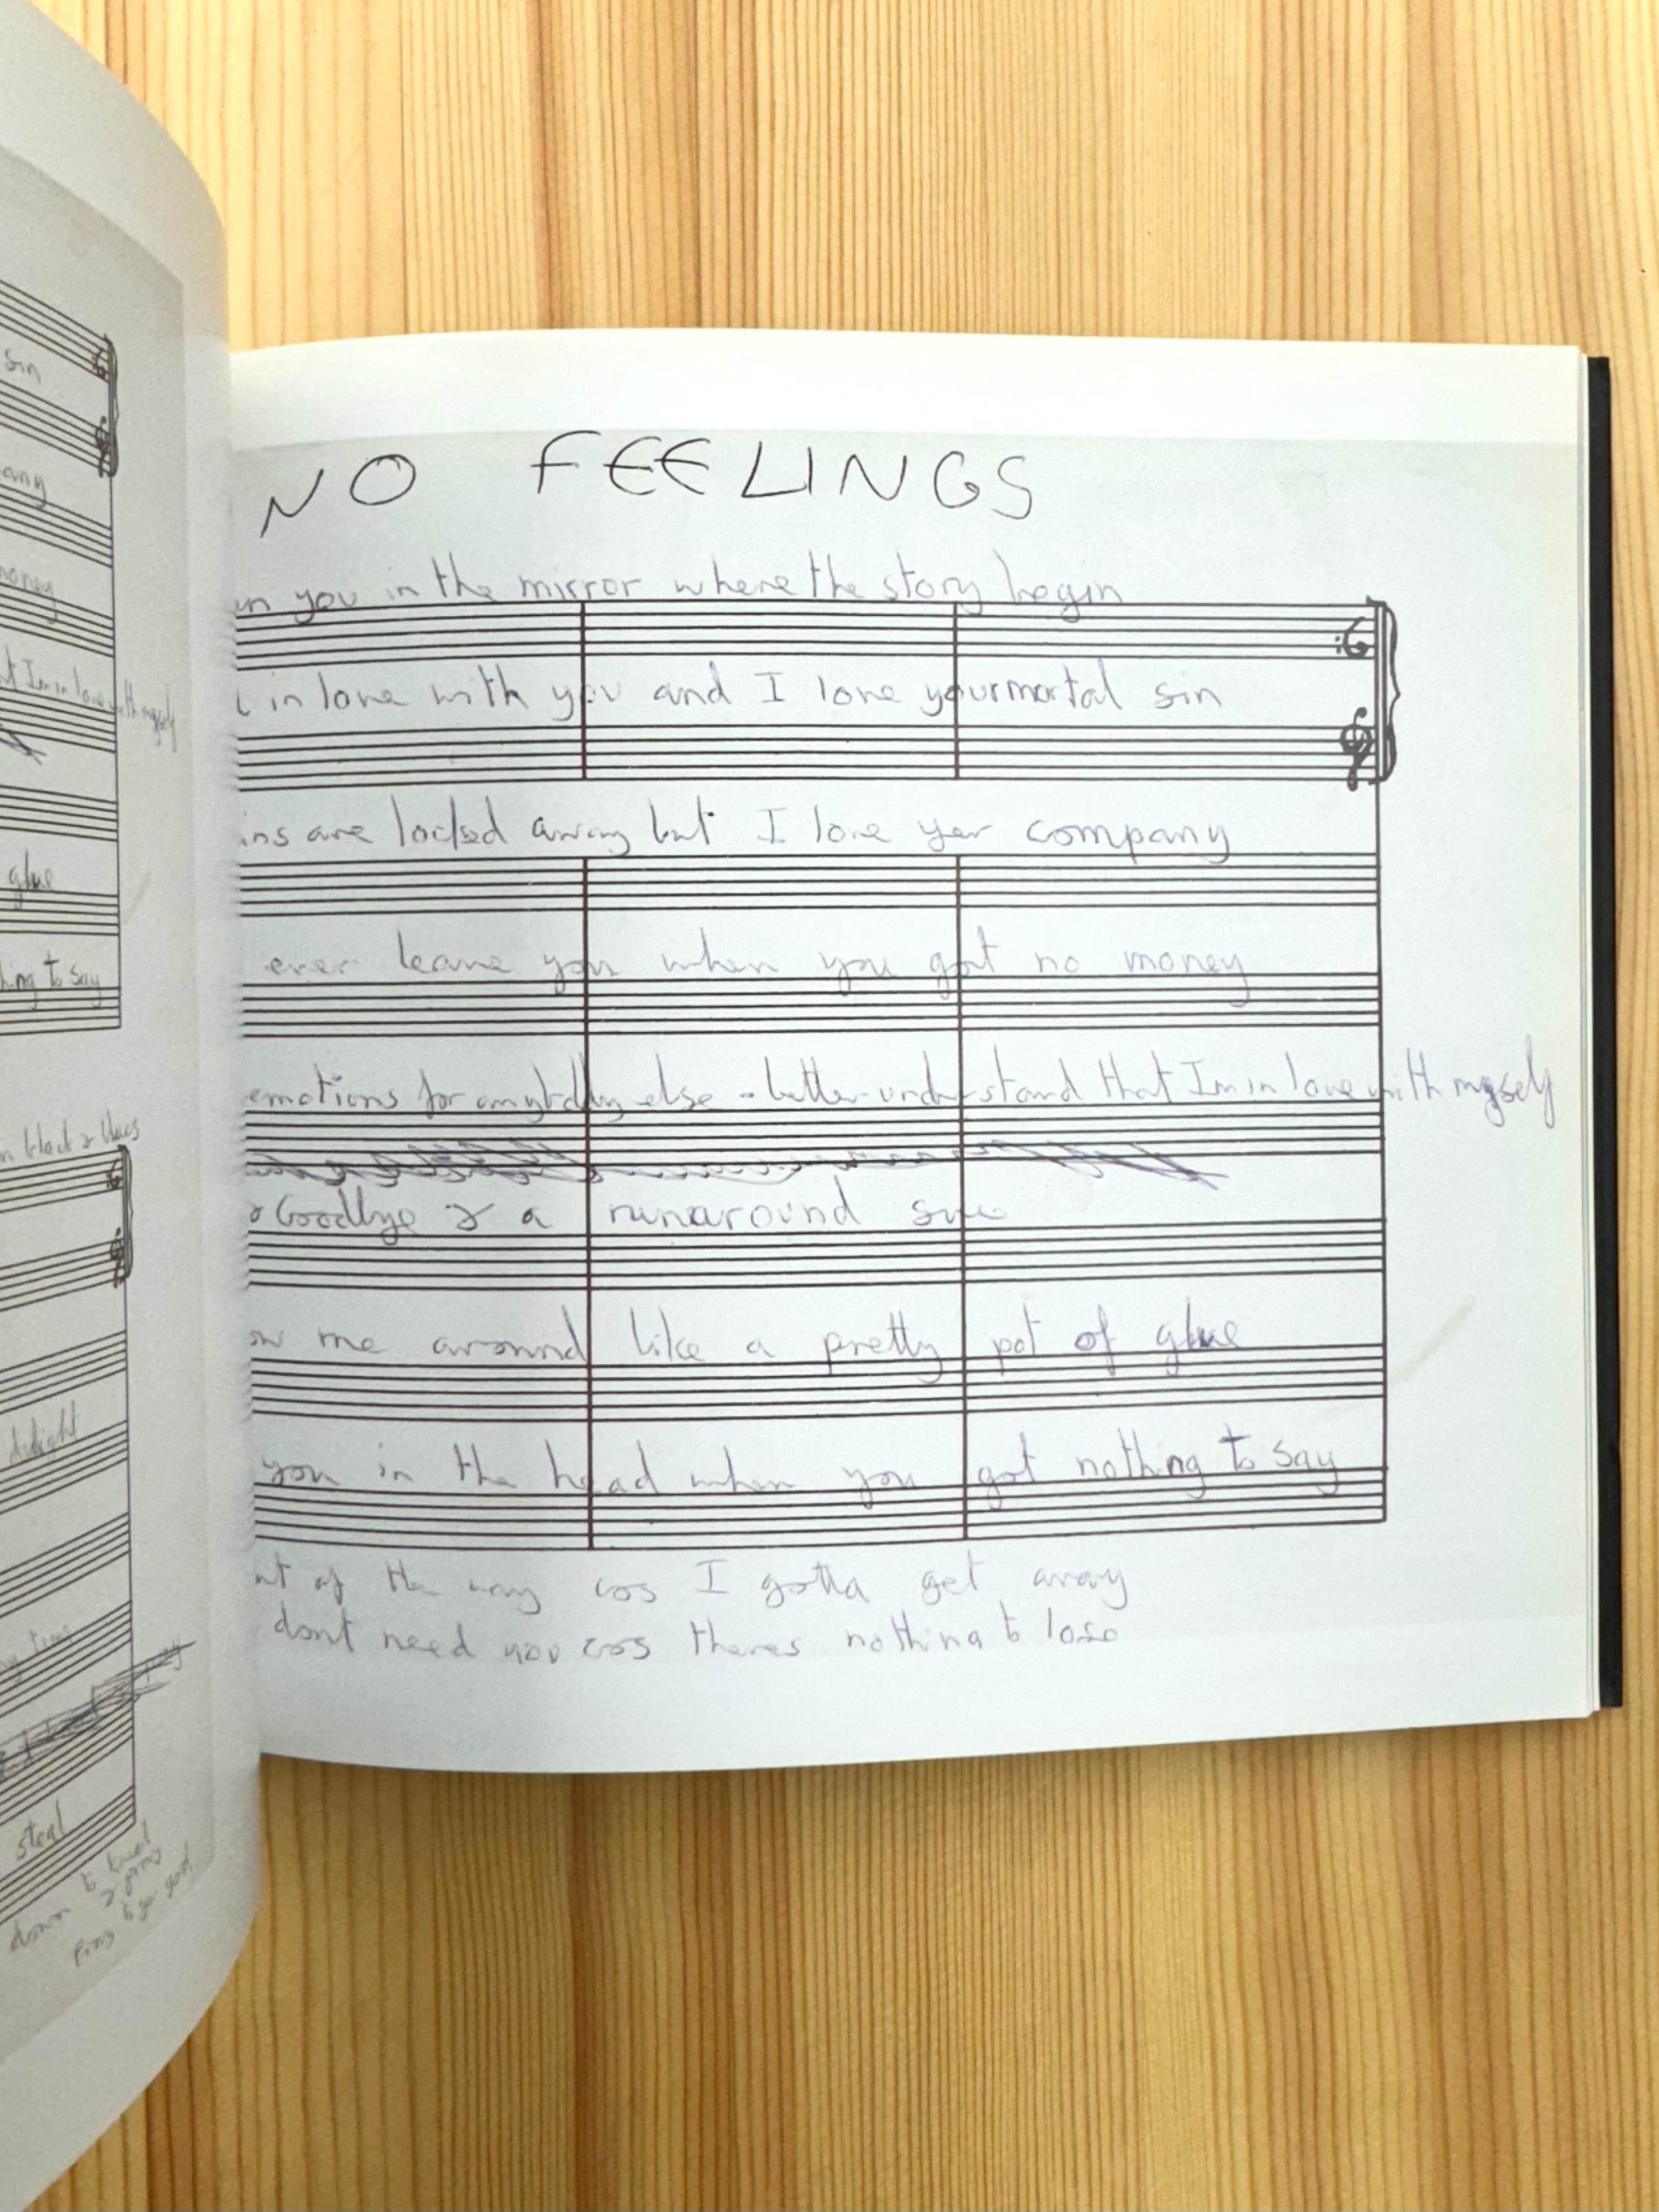 sin
any
money
Im in love with myself
glue
hing to say
delight
steal
down to
NO FEELINGS
you in the mirror where the story begin
in love with you and I love your mortal sin
ins are locked away but I love yer company
ever leave you when you got no money
emotions for anybody else - better understand that Im in love with myself
Goodbye & a runaround sue
ow me around like a pretty pot of glue
you in the head when you got nothing to say
of the way cos I gotta get away
dont need you cos theres nothing to lose